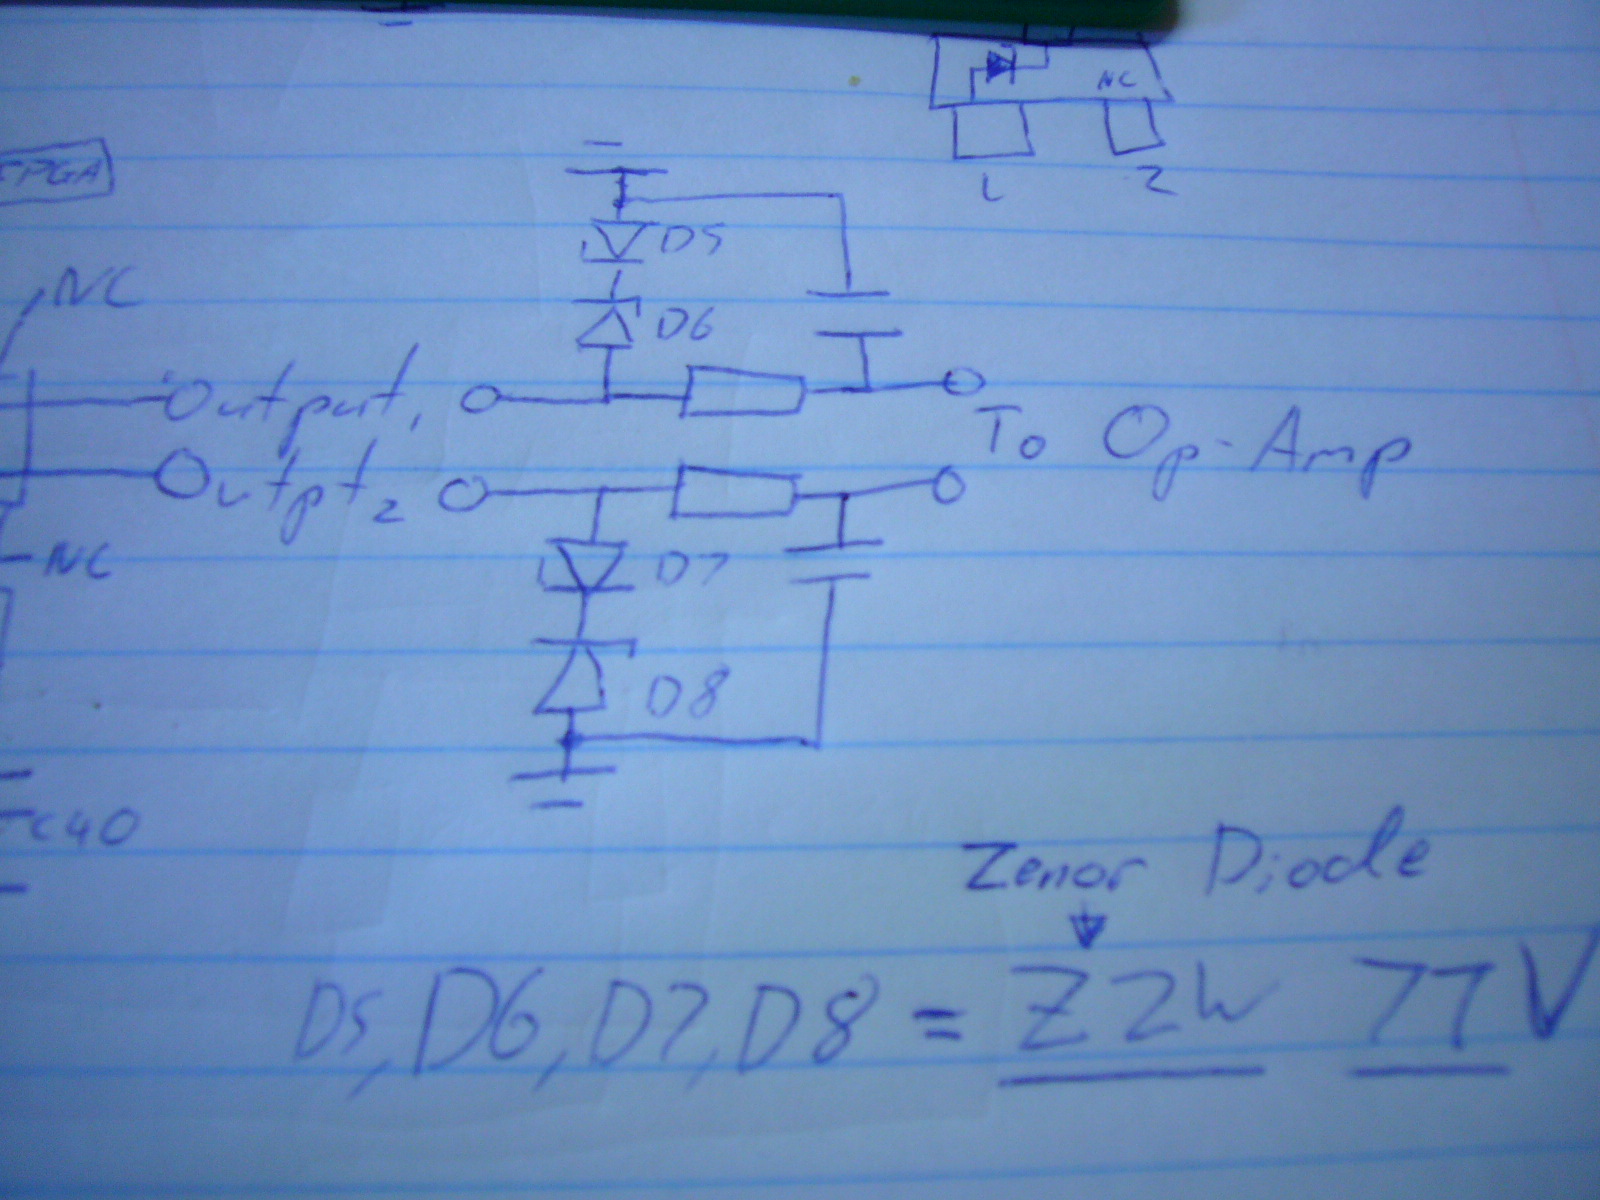 NC
1 2
FPGA
D5
NC
D6
Output1
To Op-Amp
Outpt2
NC
D7
D8
C40
Zenor Diode
D5, D6, D7, D8 = Z2W 77V